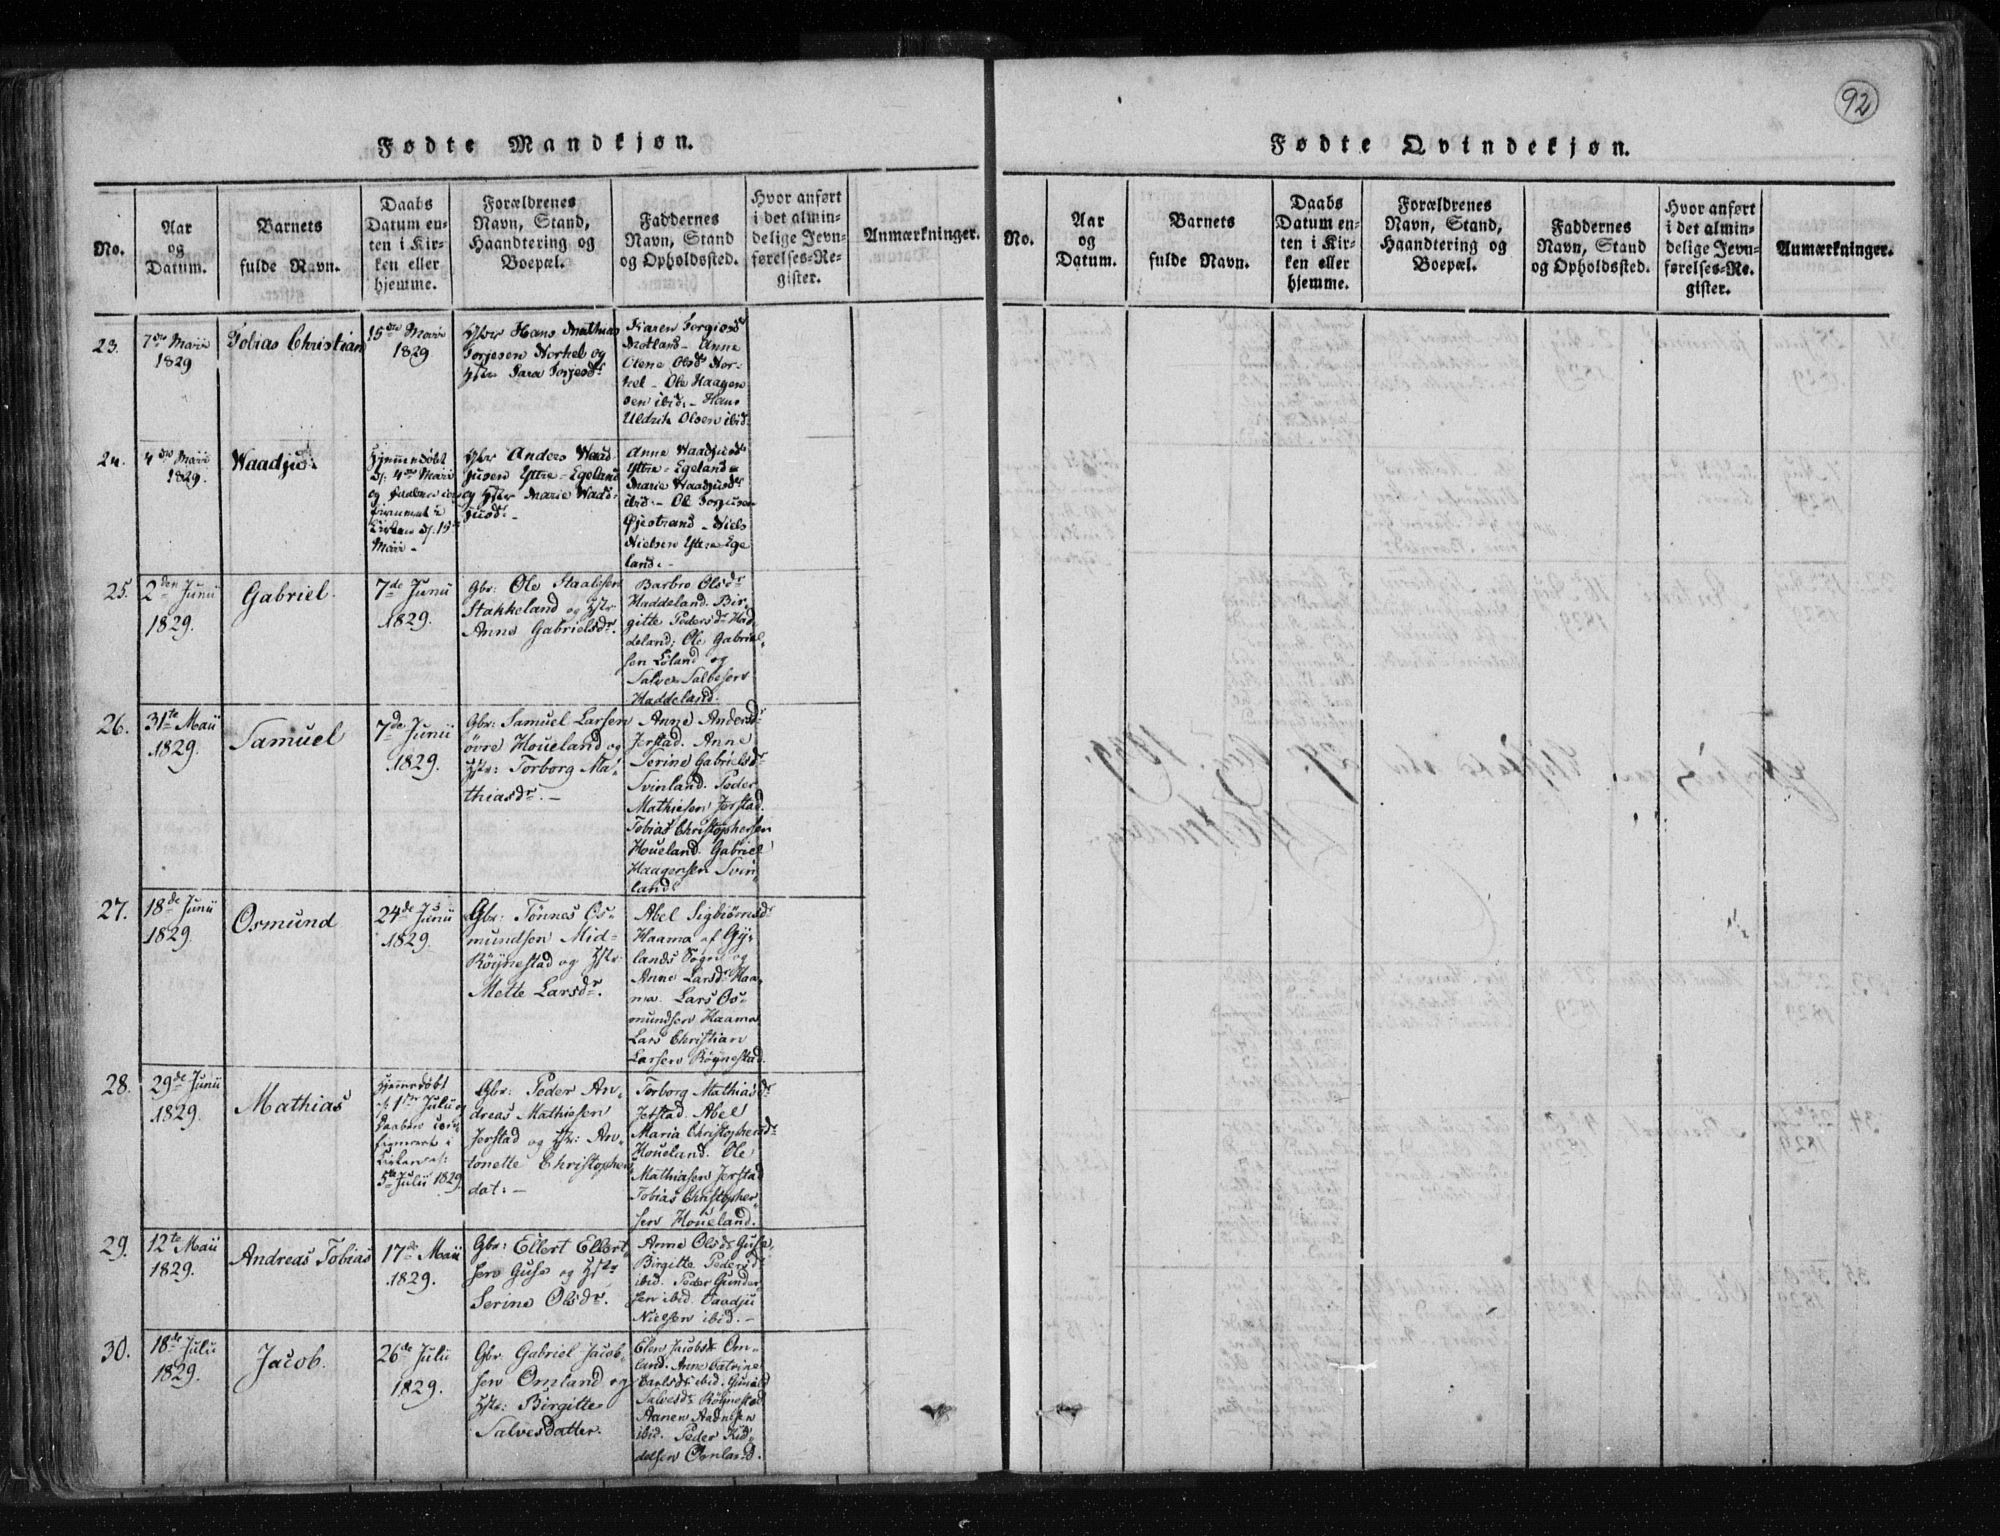 92
Fødte Mandkjøn.
No.
Aar
og
Datum.
Barnets
fulde Navn.
Daabs
Datum en-
ten i Kir-
ken eller
hjemme.
Forældrenes
Navn, Stand,
Haandtering og
Boepæl.
Faddernes
Navn, Stand
og Opholdssted.
Hvor anført
i det almin-
delige Jevn-
førelses-Re-
gister.
Anmærkninger.
23.
7de Marti
1829
Tobias Christian
15de Marti
1829
Hans Mathias
Torjesen Horkel og
Sara Torjesdr
Karen Torgiosd
Motland - Anne
Olene Olsdr Hor-
kel - Ole Haagen
sen ibid: - Hans
Uldrik Olsen ibid
24.
4de Marti
1829.
Waadju:
Hjemmedøbt
d: 4de Marti
og Daaben con
firmeret i
Kirken d: 15de
Marti -
Anders Waad-
jusen Yttre-Egeland
og Marie Waad-
jusd: -
Anne Waadjusdr
Yttre-Egeland
Marie Waadjusdr
ibid: - Ole Torjusen
Øjestrand - Niels
Nielsen Yttre Ege
land. -
25.
2den Junii
1829.
Gabriel.
7de Junii
1829.
Gbr: Ole Staalesen
Stakkeland og Hstr
Anne Gabrielsdr.
Barbro Olsdr
Haddeland. Bir-
gitte Pedersdr Had-
deland; Ole Gabriel-
sen Løland og
Salve Salvesen
Haddeland.
26.
31te Maii
1829.
Samuel
7de Junii
1829.
Gbr: Samuel Larsen
øvre Houeland og
Hstr: Torborg Ma-
thiasdr. -
Anne Andersdr
Jerstad. Anne
Serine Gabrielsdr
Svinland. Peder
Mathiesen Jerstad.
Tobias Christophersen
Houeland. Gabriel
Haagensen Svin-
land
27.
18de Junii
1829.
Osmund
24de Junii
1829.
Gbr: Tønnes Os-
mundsen Mid-
Røÿnestad og Hstr:
Mette Larsdr.
Abel Sigbiørnsdr
Haama af Gÿ-
lands Sogn og
Anne Larsdr Haa-
ma. Lars Os-
mundsen Haama
Lars Christian
Larsen Røÿnestad.
28.
29de Junii
1829.
Mathias
Hjemmedøbt
d: 1ste Julii og
Daaben con-
firmeret i
Kirken d:
5te Julii 1829.
Gbr: Peder An-
dreas Mathiesen
Jerstad og Hstr: An-
tonette Christopher
dat: -
Torborg Mathiasdr
Jerstad. Abel
Maria Christophersdr
Houeland. Ole
Mathiasen Jerstad
Tobias Christopher-
sen Houeland.
29.
12te Maii
1829.
Andreas Tobias
17de Maii
1829.
Gbr: Ellert Ellert-
sen Guse og Hstr
Serine Olsdr.
Anne Olsdr Guse,
Birgitte Pedersdr
ibid. Peder Gunder-
sen ibid. Vaadju
Nielsen ibid. -
30.
18de Julii
1829.
Jacob.
26de Julii
1829.
Gbr Gabriel Jacob-
sen Omland og
Hstr: Birgitte
Salvesdatter.
Elen Jacobsdr Om-
land. Anne Catrine
Carlsdr ibid. Gunild
Salvesdr Røÿnestad
Aanen Aadnesen
ibid. Peder Kid-
delsen Omland.
Fødte Qvindekjøn.
No.
Aar
og
Datum.
Barnets
fulde Navn.
Daabs
Datum en-
ten i Kir-
ken eller
hjemme.
Forældrenes
Navn, Stand,
Haandtering og
Boepæl.
Faddernes
Navn, Stand
og Opholdssted.
Hvor anført
i det almin-
delige Jevn-
førelses-Re-
gister.
Anmærkninger.